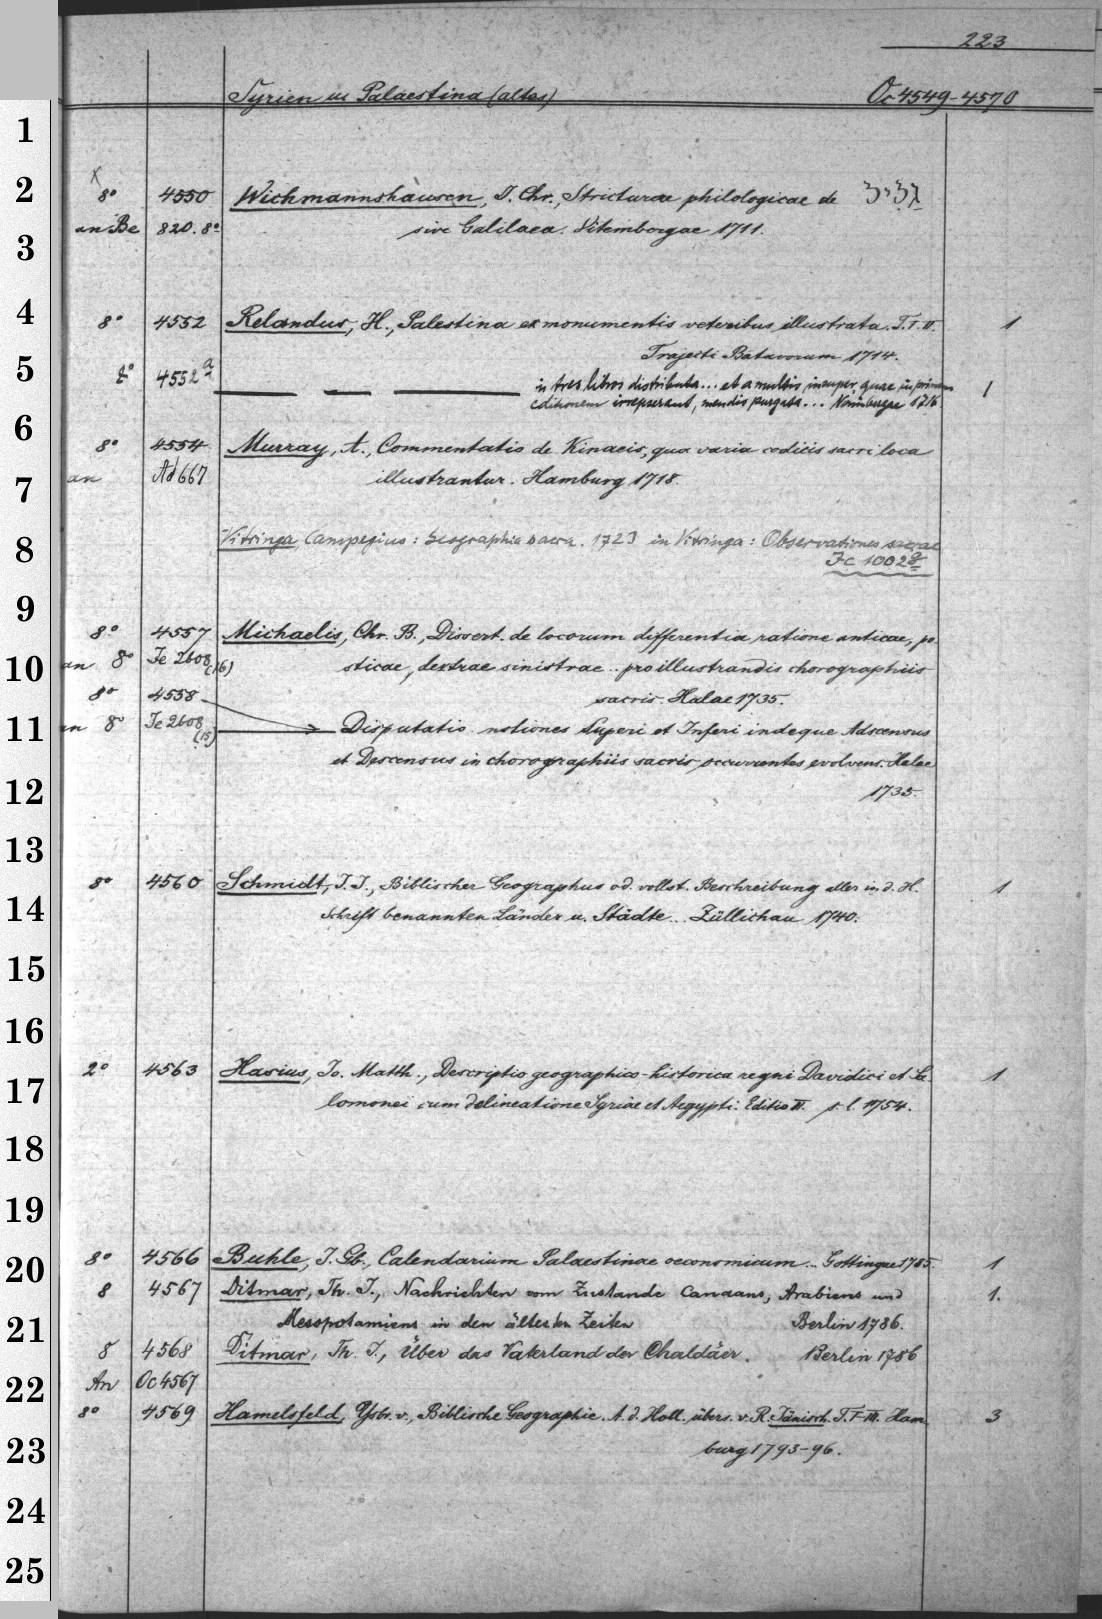 223
Syrien u. Palaestina (altes) Oc 4549-4570
1
2 8° 4550 Wichmannshausen, J. Chr., Stricturae philologicae de גליל
an Be 820. 8° sive Galilaea. Vitembergae 1711.
3
4 8° 4552 Relandus, H., Palestina ex monumentis veteribus illustrata. T. I. II. 1
Trajecti Batavorum 1714.
5 8° 4552 a in tres libros distributa... et a multis insuper, quae in primam 1
editionem irrepserant, mendis purgata... Norimbergae 1716.
6 8° 4554 Murray, A., Commentatio de Kinaeis, qua varia codicis sacri loca
7 an Ad 667 illustrantur. Hamburg 1718.
8 Vitringa, Campegius: Geographia sacra. 1723 in Vitringa: Observationes sacrae
Fc 1002
9
8° 4557 Michaelis, Chr. B., Dissert. de locorum differentia ratione anticae, po-
10 an 8° Je 2608 (16) sticae, dextrae sinistrae .. pro illustrandis chorographiis
8° 4558 sacris. Halae 1735.
11 an 8° Je 2608 (15) Disputatio notiones Superi et Inferi indeque Adscensus
et Descensus in chorographiis sacris occurrentes evolvens. Halae
12 1735.
13
14 8° 4560 Schmidt, J. J., Biblischer Geographus od. vollst. Beschreibung aller in d. H. 1
Schrift benannten Länder u. Städte .. Züllichau 1740.
15
16
17 2° 4563 Hasius, Jo. Matth., Descriptio geographico-historica regni Davidici et Sa- 1
lomonei cum delineatione Syriae et Aegypti. Editio II. s. l. 1754.
18
19
20 8° 4566 Buhle, J. Gb., Calendarium Palaestinae oeconomicum .. Gottingae 1785. 1
8 4567 Ditmar, Th. J., Nachrichten vom Zustande Canaans, Arabiens und 1.
21 Mesopotamiens in den ältesten Zeiten Berlin 1786.
8 4568 Ditmar, Th. J., Über das Vaterland der Chaldäer. Berlin 1786
22 An Oc 4567
8° 4569 Hamelsfeld, Ysbr. v., Biblische Geographie. A. d. Holl. übers. v. R. Jänisch. T. I-III. Ham- 3
23 burg 1793-96.
24
25